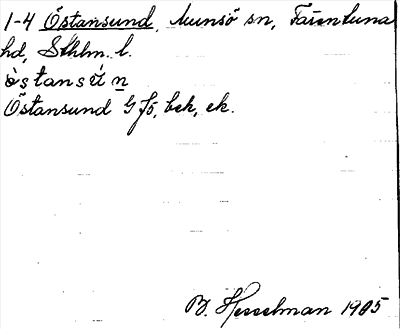 1-4 Östansund, Munsö sn, Färentuna
hd, Sthlm. l.
östansún
Östansund G Jö, bek, ek.
B. Hesselman 1905